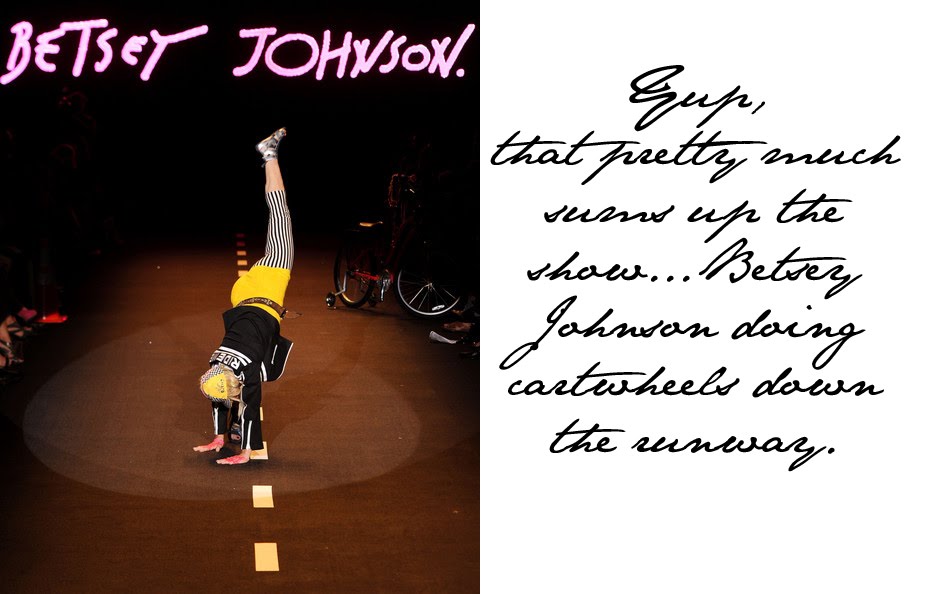 BETSEY JOHNSON.
RIDE
Yup,
that pretty much
sums up the
show...Betsey
Johnson doing
cartwheels down
the runway.